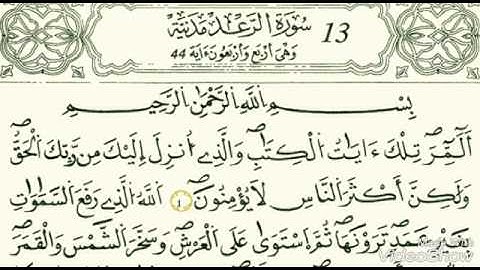 سُورَةُ الرَّعْدِ مَدَنِيَّة 13
وَهْيَ أَرْبَعٌ وَأَرْبَعُونَ ءَايَة 44
بِسْمِ اللَّهِ الرَّحْمَٰنِ الرَّحِيمِ
أَلَٓمِّٓرۖ تِلْكَ ءَايَٰتُ الْكِتَٰبِۖ وَالَّذِےٓ أُنزِلَ إِلَيْكَ مِن رَّبِّكَ الْحَقُّ
وَلَٰكِنَّ أَكْثَرَ النَّاسِ لَا يُؤْمِنُونَۖ ١ اللَّهُ الَّذِے رَفَعَ السَّمَٰوَٰتِ
بِغَيْرِ عَمَدٖ تَرَوْنَهَاۖ ثُمَّ اَسْتَوَىٰ عَلَى الْعَرْشِۖ وَسَخَّرَ الشَّمْسَ وَالْقَمَرَ
Made with
VideoShow